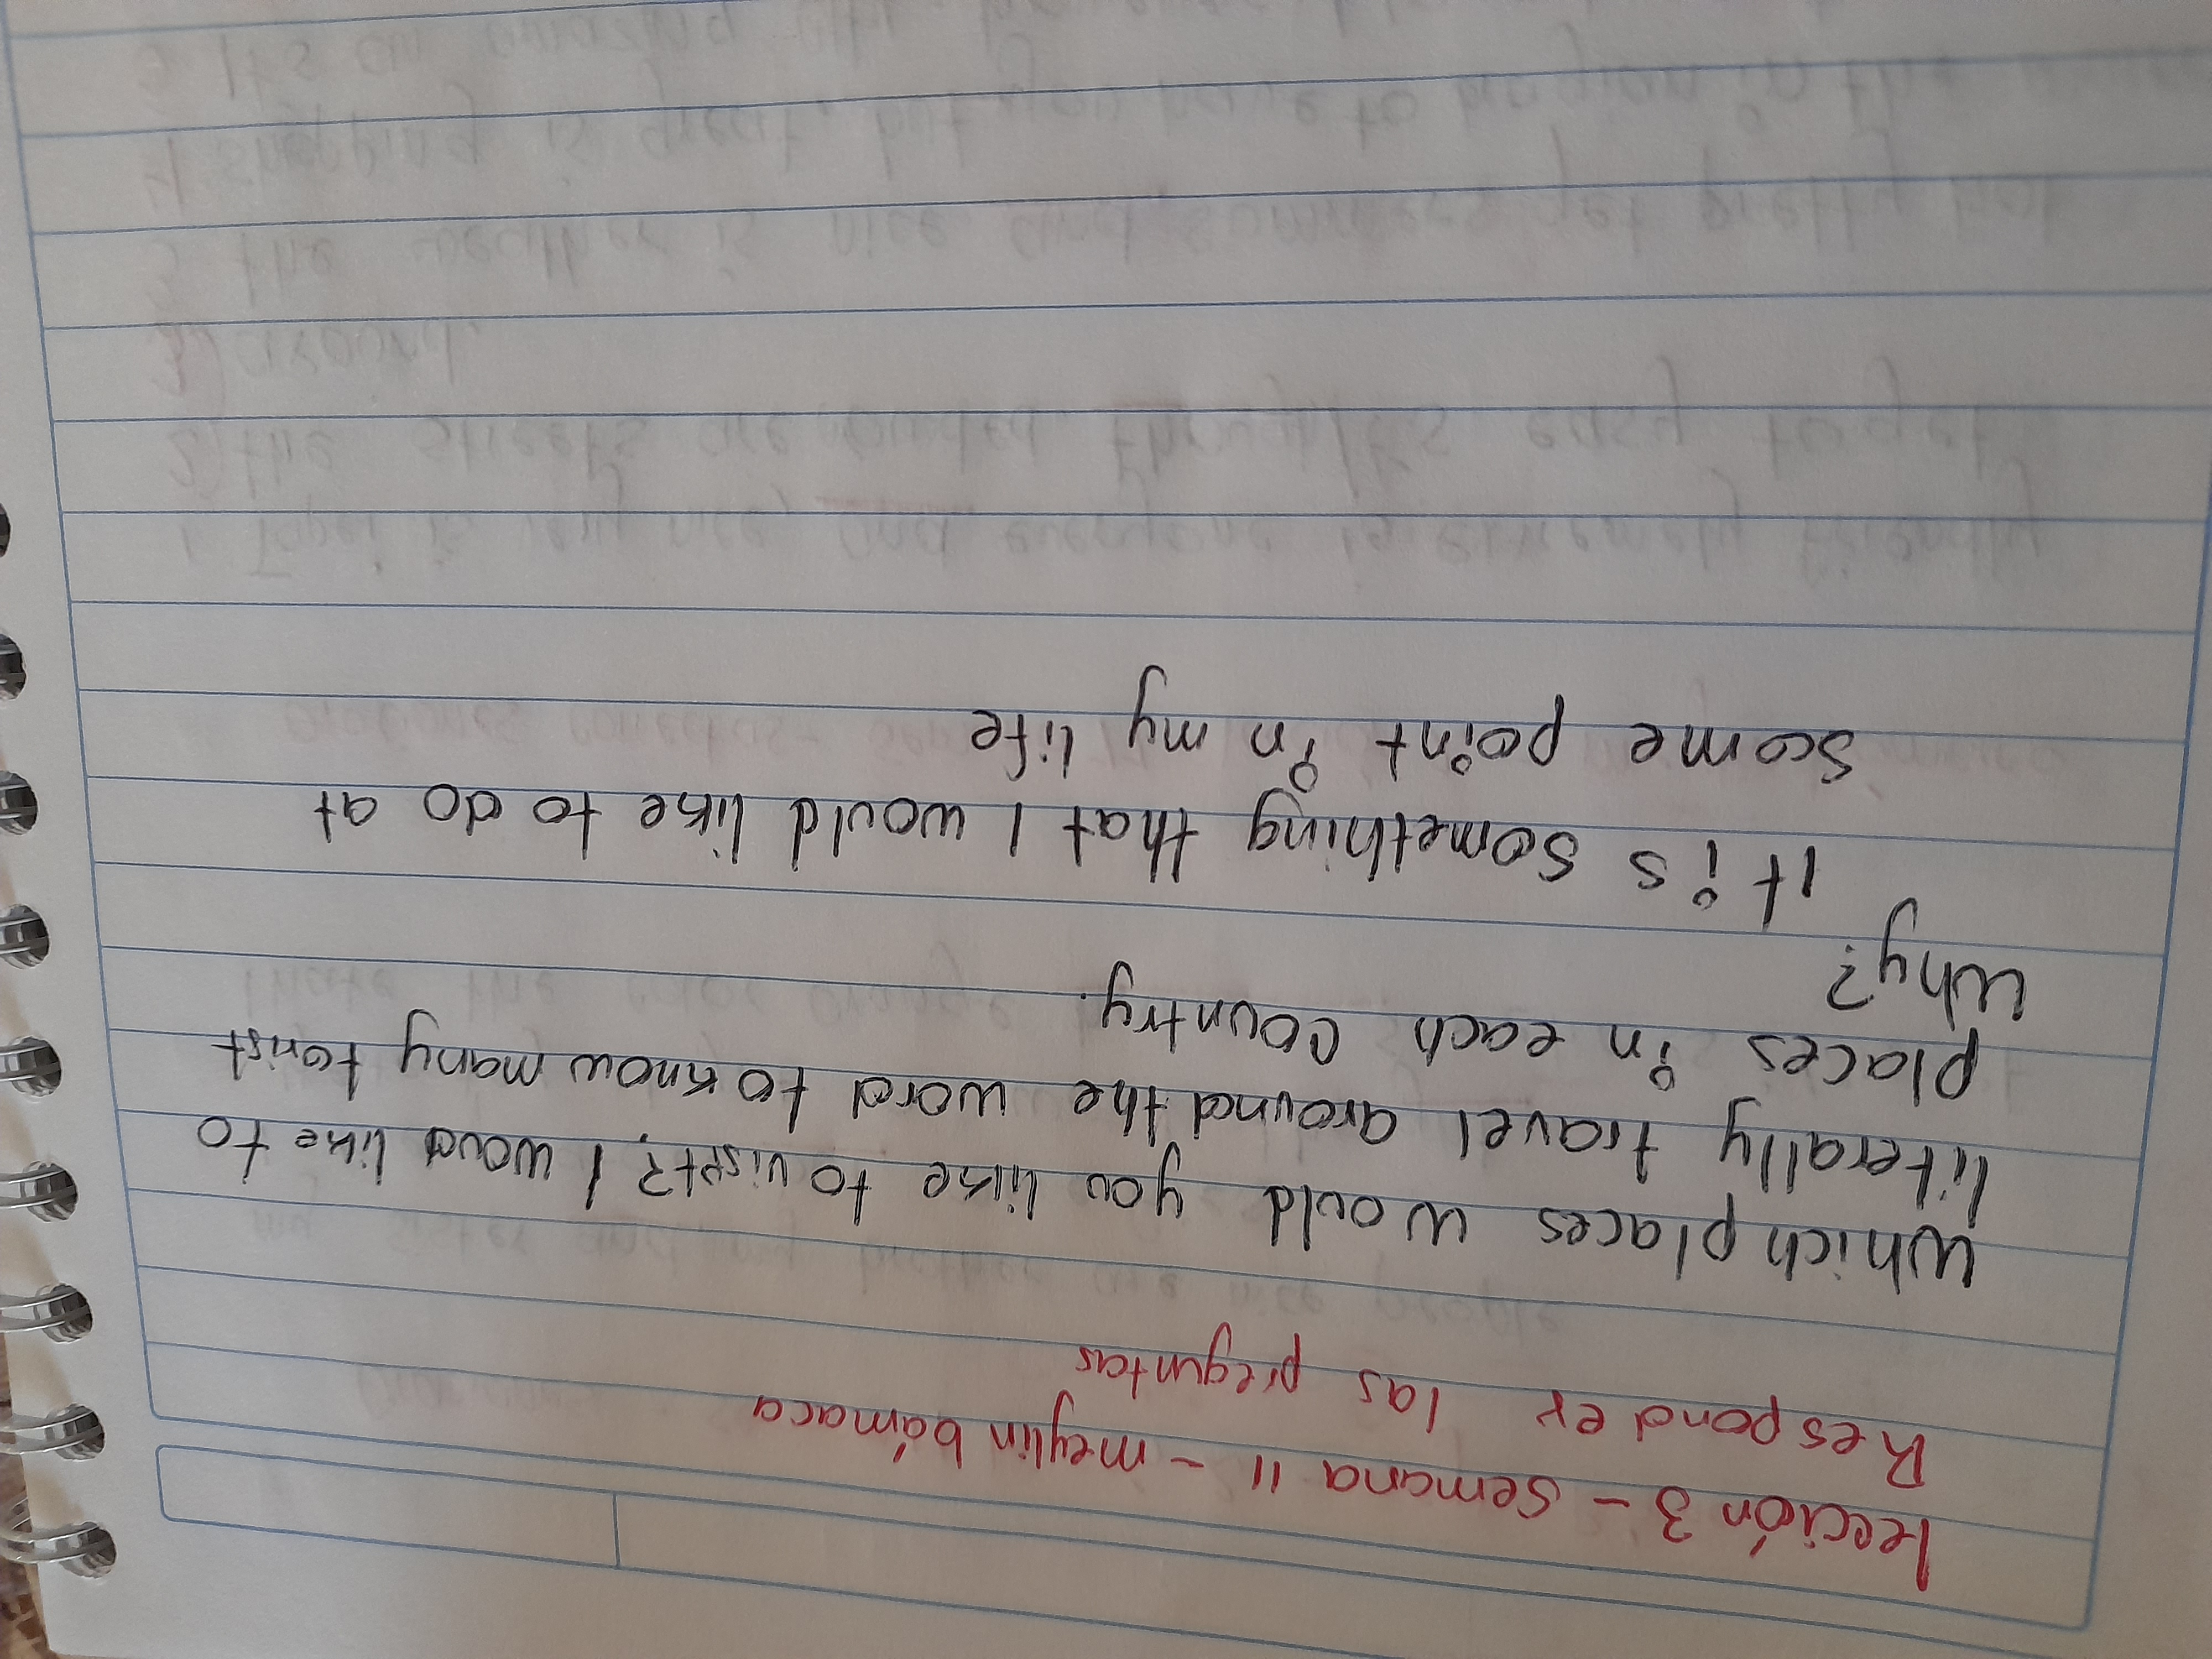 Lección 3 - Semana 11 - meylin bámaca
Responder las preguntas
Which places would you like to visit? I woud like to
literally travel around the word to know many torist
places in each country.
Why?
It is something that I would like to do at
some point in my life